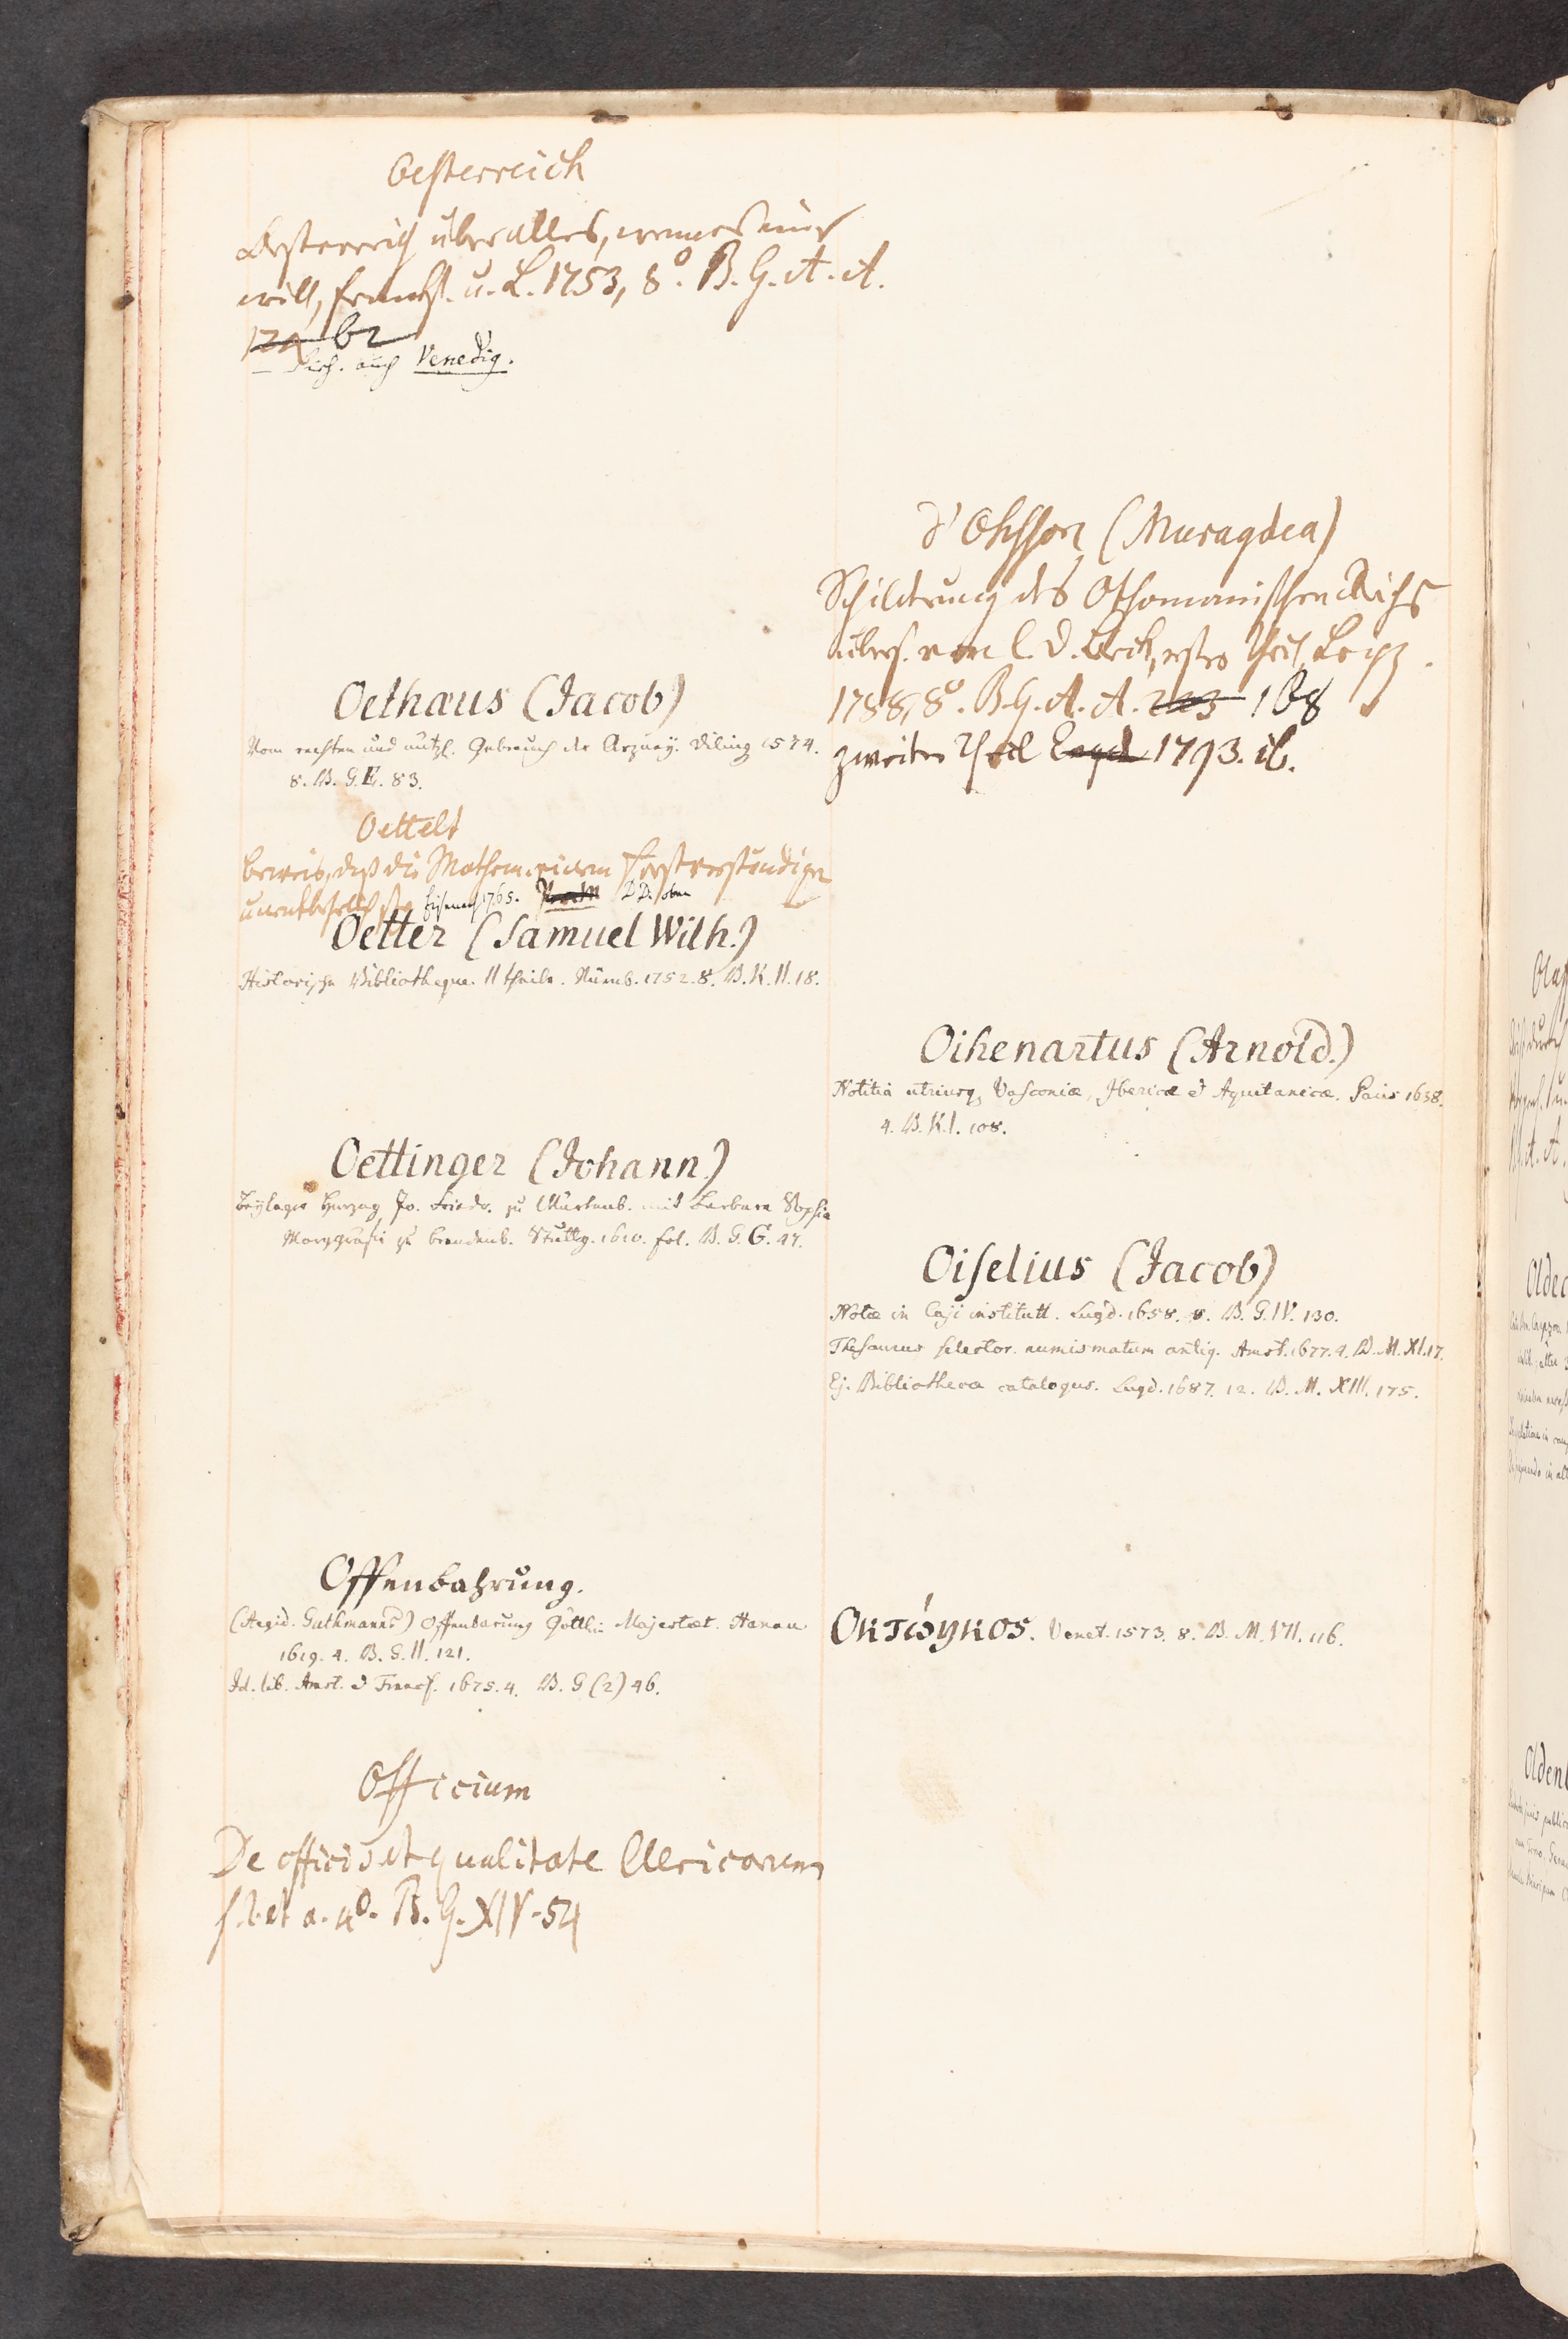 Oesterreich
Oesterreich über alles, wenn es nur
will, Frankf. u. L. 1753, 8°. B. G. A. A.
b2
Sieh. auch Venedig.
Oethæus (Jacob)
Vom rechten und nützl. Gebrauch der Arzney. Diling 1574.
8. B. G. E. 83.
Oettelt
Beweis, daß die Mathem. einem Forstverständigen
unentbehrlich sey Eisenach 1765. DD. oben
Oetter (Samuel Wilh.)
Historische Bibliotheque. II theile. Nürnb. 1752. 8. B. K. II. 18.
Oettinger (Johann.)
Beylager Herzog Jo. Friedr. zu Würtenb. mit Barbara Sophia
Marggräfin zu Brandenb. Stuttg. 1610. fol. B. G. G. 47.
Offenbahrung.
(Aegid. Guthmanns) Offenbarung Göttlir Majestæt. Hanau
1619. 4. B. G. II. 121.
Id. lib. Amst. & Francf. 1675. 4. B. G (2) 46.
Officium
De officio et qualitate Clericorum
s. l. et a. 4°. B. G. XIV. 54
d'Ohsson (Muragdea)
Schilderung des Othomanischen Reichs
übers. von C. D. Beck, erster Theil Leipz.
1788, 8°. B. G. A. A. 223 1 B8
zweiter Theil 1793. ib.
Oihenartus (Arnold.)
Notitia utriusq Vasconiæ, Ibericæ & Aquitanicæ. Paris 1638.
4. B. K. I. 108.
Oiselius (Jacob)
Notæ in Caji institutt. Lugd. 1658. 8. B. G. IV. 130.
Thesaurus selector. numismatum antiq. Amst. 1677. 4. B. M. XI. 17.
Ej. Bibliotheca catalogus. Lugd. 1687. 12. B. M. XIII. 175.
Οκτώηκος. Venet. 1573. 8. B. M. VII. 116.